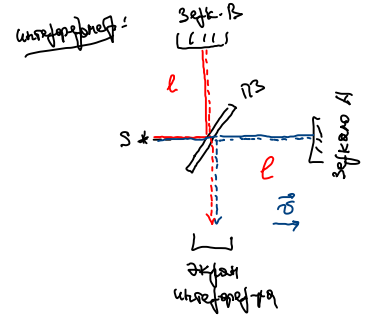 интерферометр:
Зерк. B
l
ПЗ
S *
Зеркало A
l
v⃗
экран
интерферо-ра